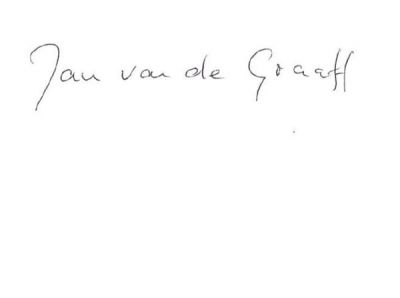 Jan van de Graaff